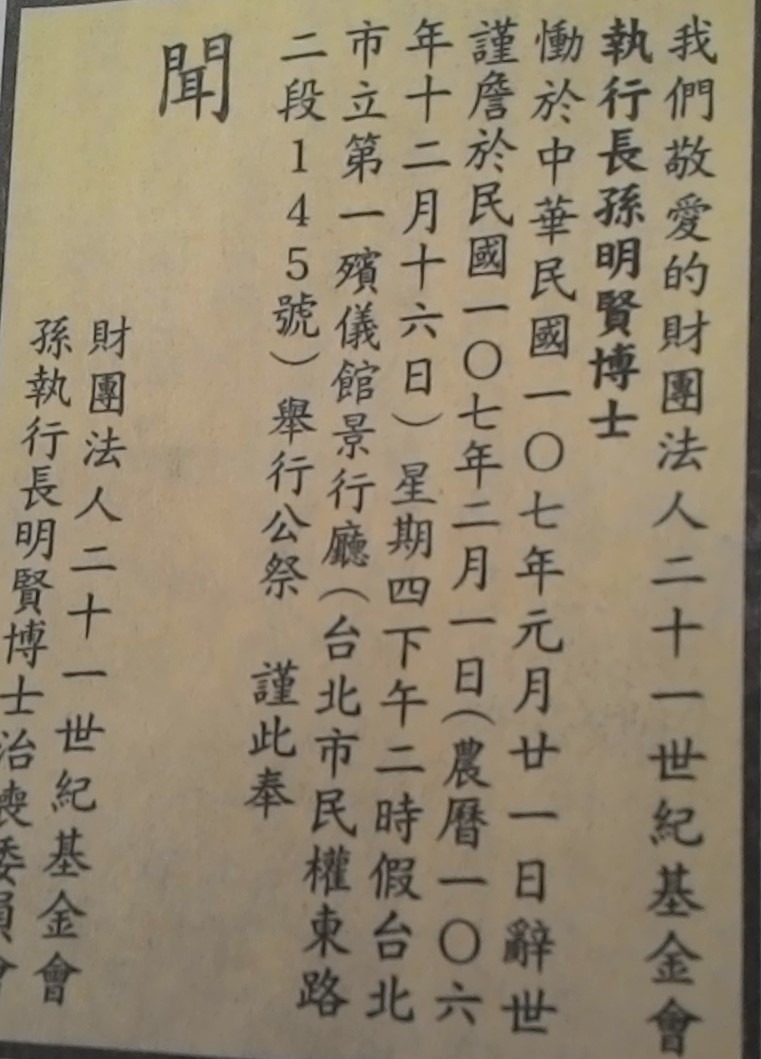 我們敬愛的財團法人二十一世紀基金會
執行長孫明賢博士
慟於中華民國一〇七年元月廿一日辭世
謹詹於民國一〇七年二月一日(農曆一〇六
年十二月十六日)星期四下午二時假台北
市立第一殯儀館景行廳(台北市民權東路
二段145號)舉行公祭 謹此奉
聞
財團法人二十一世紀基金會
孫執行長明賢博士治喪委員會